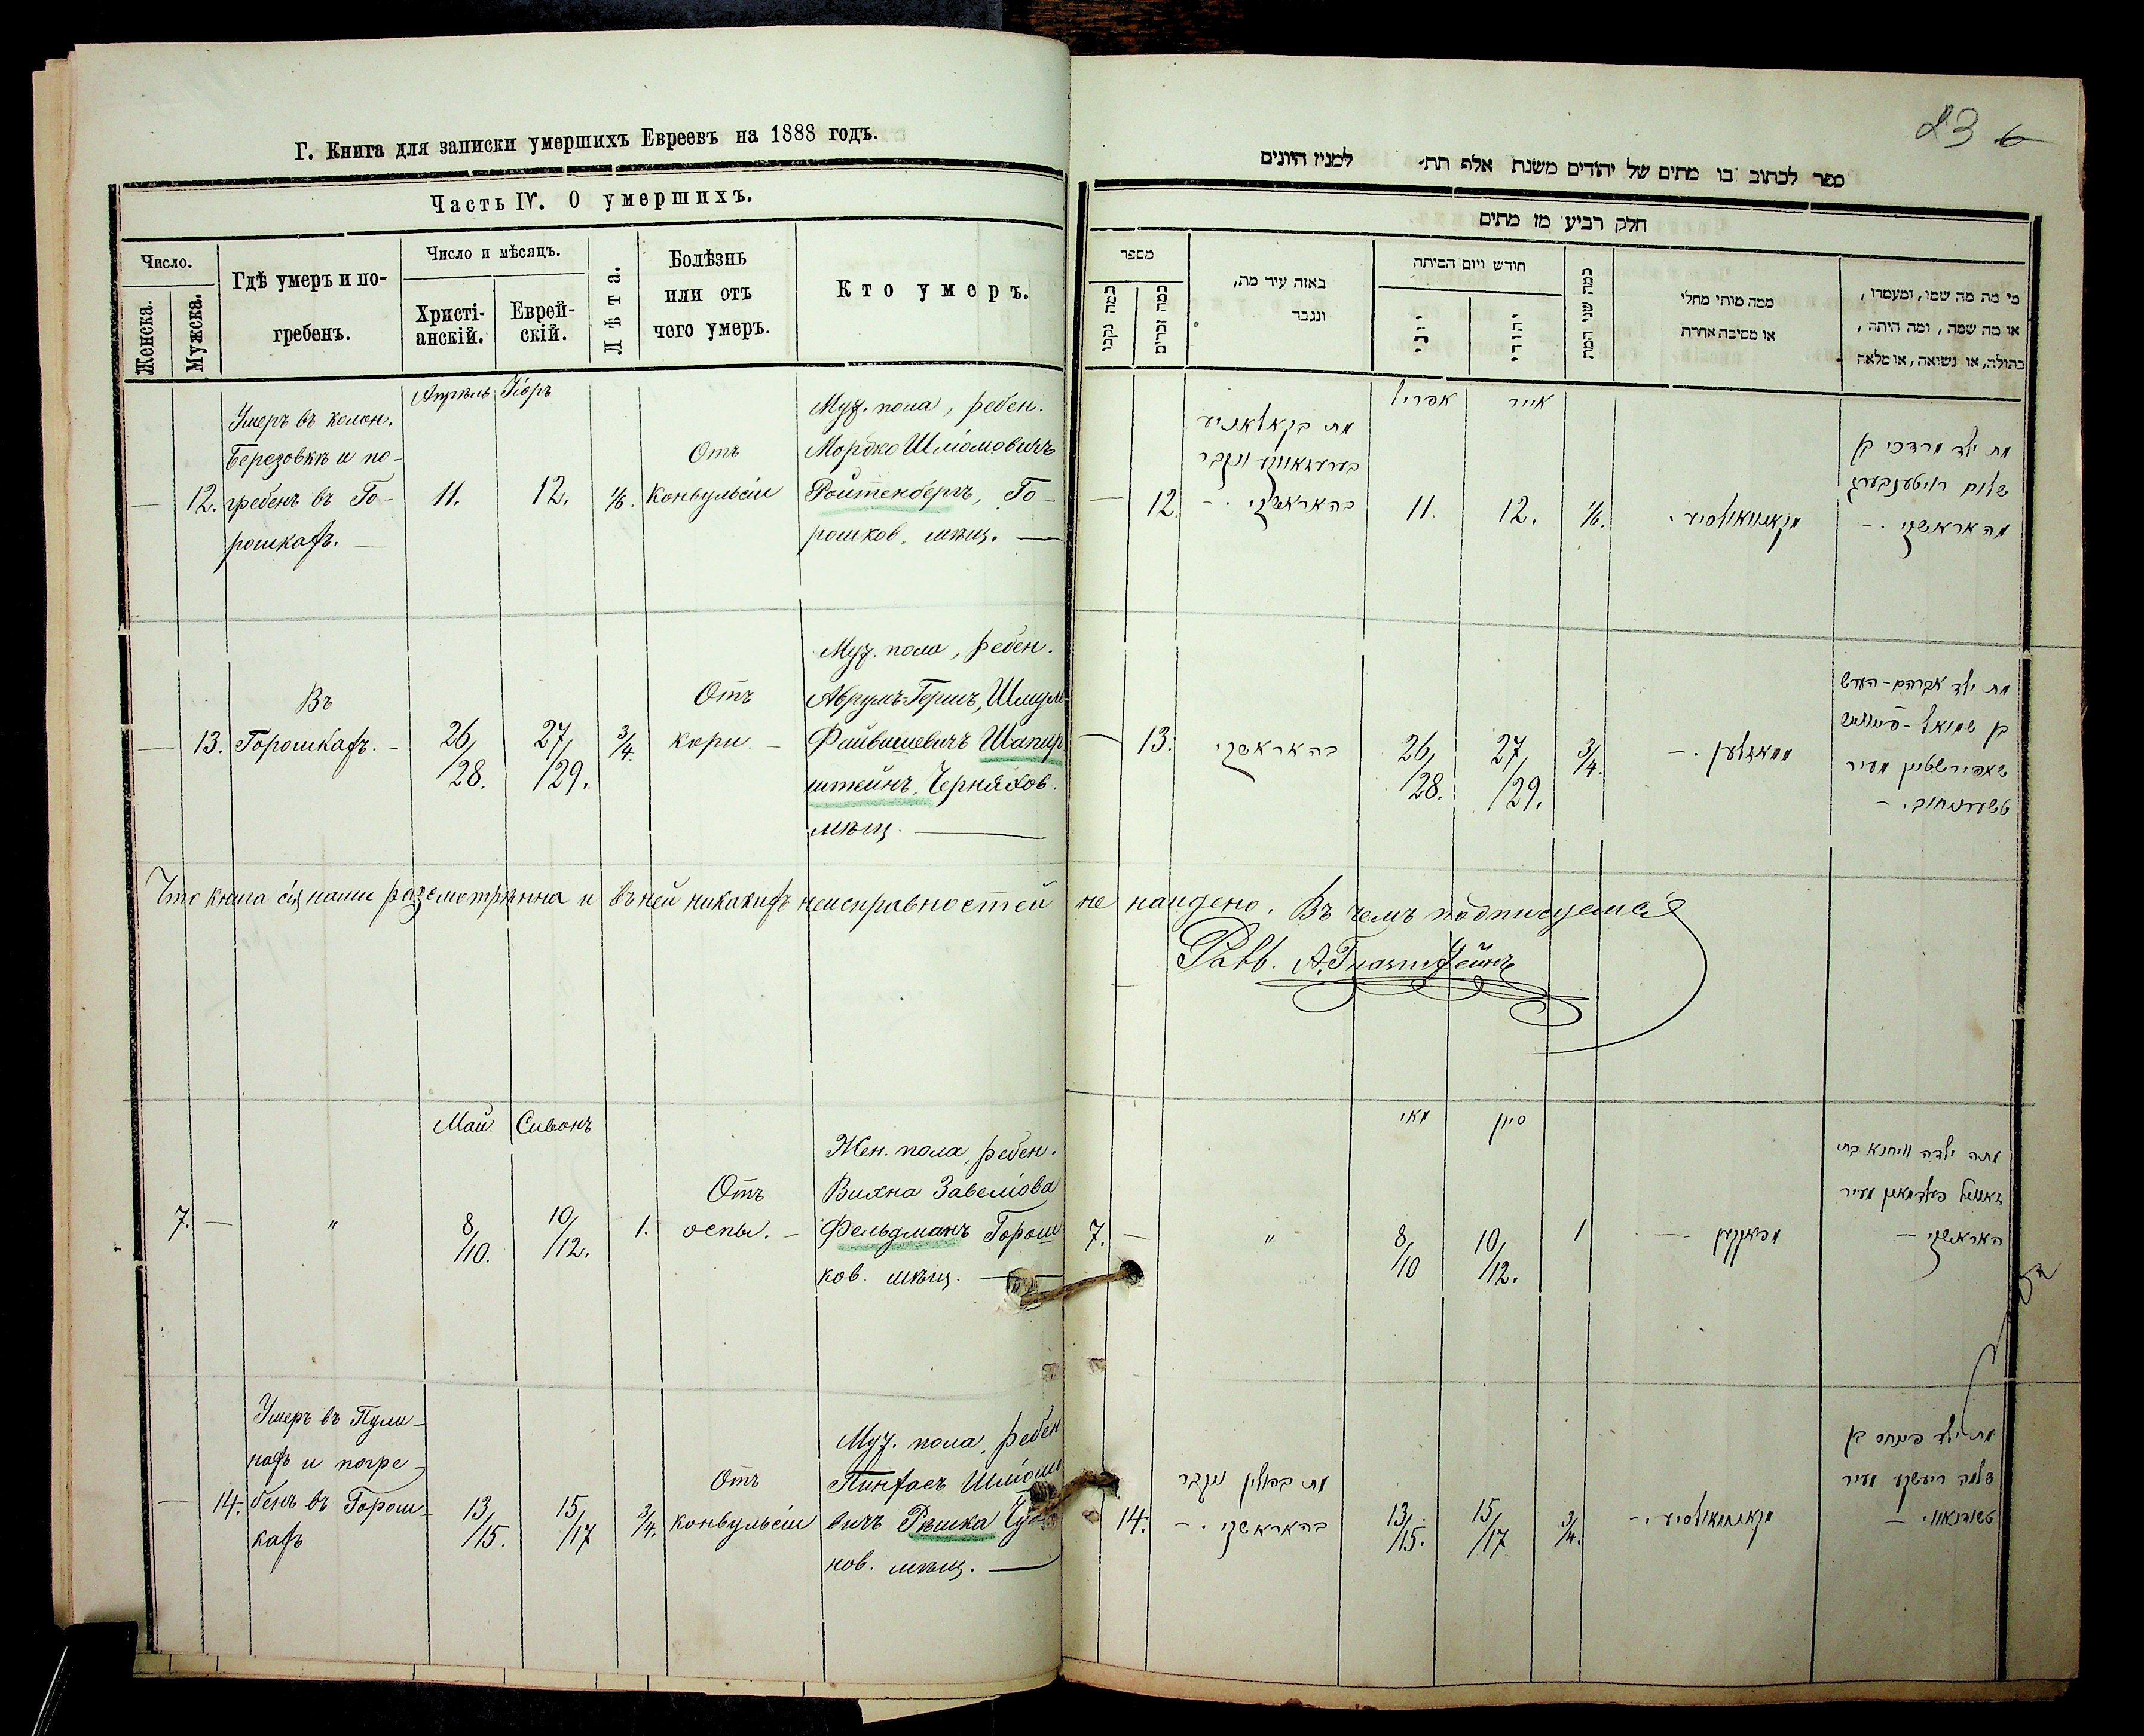 Г. Книга для записки умершихъ Евреевъ на 1888 годъ.
Часть IV. О умершихъ.
Число.
Женска.
Мужска.
Гдѣ умеръ и по-
гребенъ.
Число и мѣсяцъ.
Христі-
анскій.
Еврей-
скій.
Лѣта.
Болѣзнь
или отъ
чего умеръ.
Кто умеръ.
Апрѣль Іоръ
— 12.
Умеръ въ колон.
Березовкѣ и по-
гребенъ въ Го-
рошкахъ. —
11. 12. 1/6.
Отъ
конвульсіи
Муж. пола, ребен.
Мордко Шліомовичъ
Ройтенбергъ, Го-
рошков. мѣщ. —
— 13.
Въ
Горошкахъ. —
26/28. 27/29. 3/4.
Отъ
кори —
Муж. пола, ребен.
Аврумъ-Гершъ, Шмуль-
Файвишевичъ Шапир
штейнъ, Черняхов.
мѣщ. —
Что книга сія нами разсмотрѣнна и въ ней никакихъ неисправностей не найдено. Въ чемъ подписуемся
Равв.
Май Сивонъ
7. — "
8/10. 10/12. 1.
Отъ
оспы. —
Жен. пола, ребен.
Вихна Завеліова
Фельдманъ Горош
ков. мѣщ. —
— 14.
Умеръ въ Пули-
нахъ и погре-
бенъ въ Горош-
кахъ
13/15. 15/17 3/4.
Отъ
конвульсіи
Муж. пола, ребен
Пинхасъ Шліомо
вичъ Рѣшка Чуд
нов. мѣщ. —
ספר לכתוב בו מתים של יהודים משנת אלף תת׳ למנין היונים
חלק רביע מן מתים
מספר
כמה נקבי׳
כמה זכרים
באזה עיר מת,
ונגבר
חודש ויום המיתה
יוני
יהודי
כמה שני המת
ממה מותי מחלי
או מסיבה אחרת
מי מת מה שמו, ומעמדו,
או מה שמה, ומה היתה,
בתולה, או נשואה, או מלאה
אפריל אייר
— 12.
מת בקאלאניע
בערעזאווקע ונקבר
בהאראשקי. —
11. 12. 1/6.
מקאנוואולסיע.
מת ילד מרדכי בן
שלום רויטענבערג
מהאראשקי. —
— 13.
בהאראשקי
26/28. 27/29. 3/4.
ממאזלען. —
מת ילד אברהם-הערש
בן שמואל-פייוויש
שאפירשטיין מעיר
טשערניחוב. —
מאי סיון
7. — "
8/10 10/12. 1
מפאקען —
מתה ילדה וויחנא בת
זאוויל פעלדמאן מעיר
האראשקי —
14.
מת בפולין ונקבר
בהאראשקי. —
13/15. 15/17 3/4.
מקאנוואולסיע. —
מת ילד פינחס בן
שלמה רישקע מעיר
טשודנאוו. —